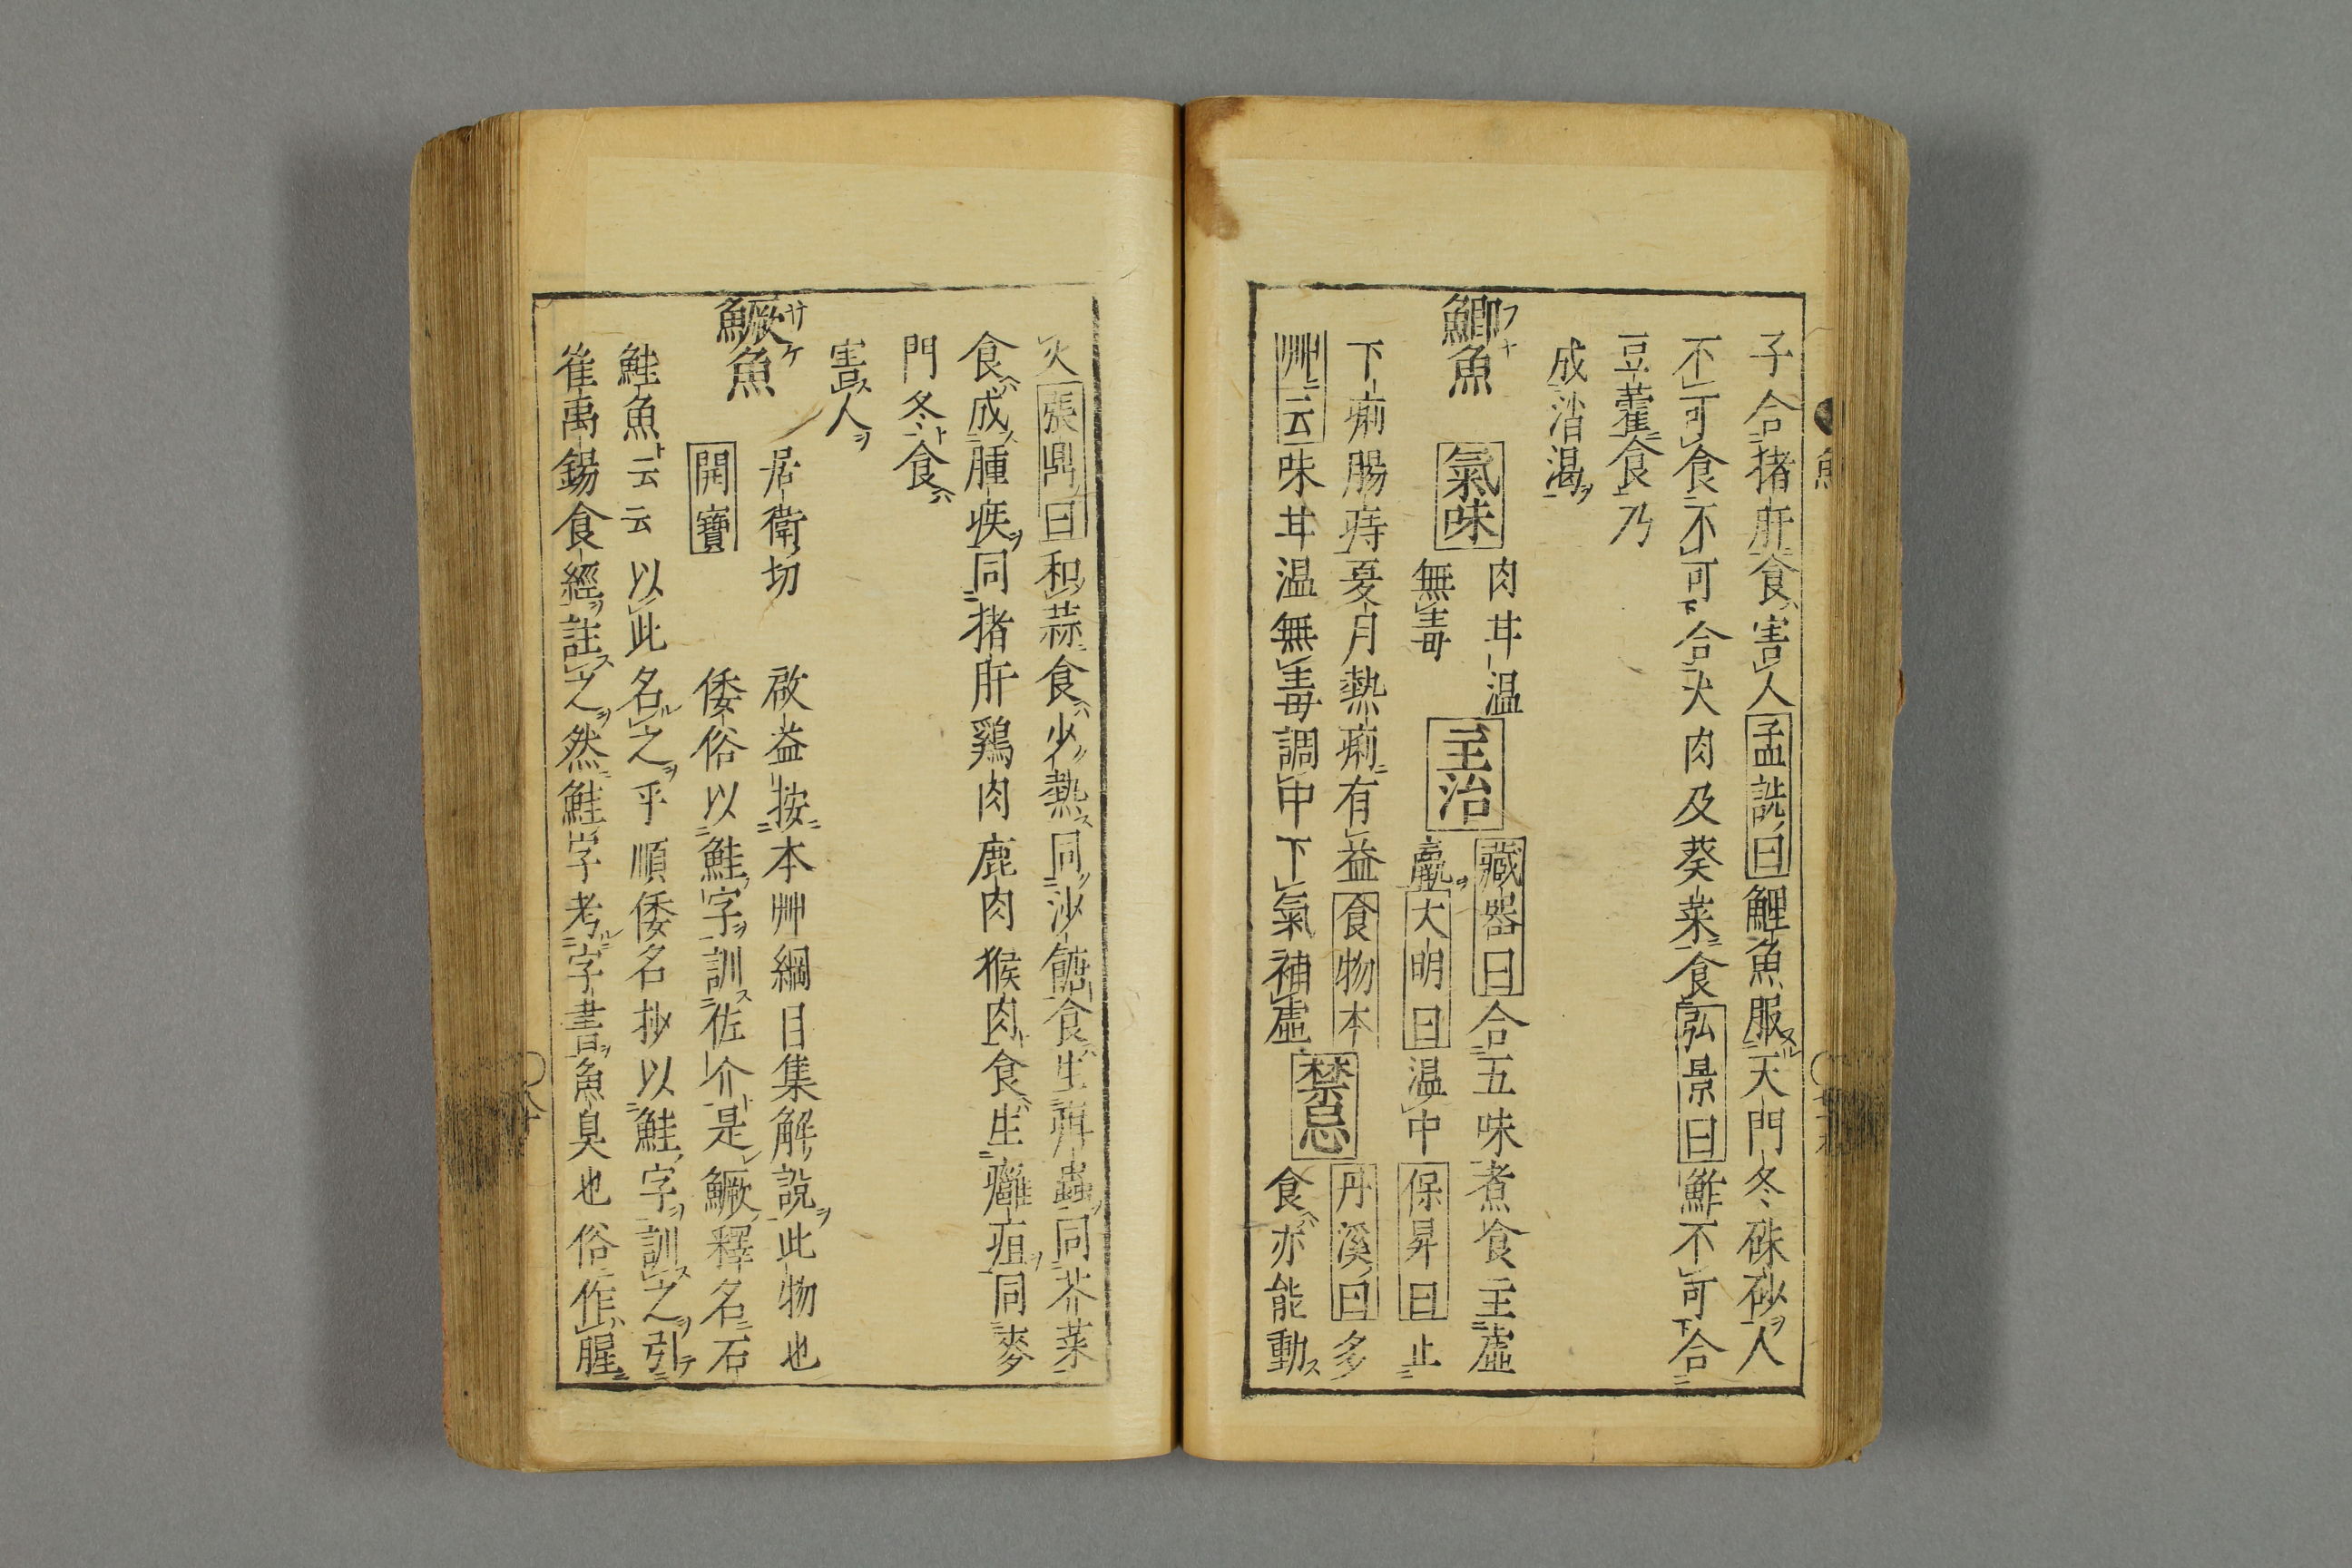 子合猪肝食害人孟詵曰鯉魚服天門冬硃砂人
不可食不可合犬肉及葵菜食弘景曰鮓不可合
豆藿食乃
成消渴
鯽魚 氣味 肉甘温
無毒
主治 藏器曰合五味煮食主虛
羸大明曰温中保昇曰止
下痢腸痔夏月熱痢有益食物本
艸云味甘温無毒調中下氣補虛
禁忌 丹溪曰多
食亦能動
火張鼎曰和蒜食少熱同沙餹食生疳蟲同芥菜
食成腫疾同猪肝鷄肉鹿肉猴肉食生癰疽同麥
門冬食
害人
鱖魚 居衛切
開寶
啟益按本艸綱目集解說此物也
倭俗以鮭字訓佐介是鱖釋名石
鮭魚云云以此名之乎順倭名抄以鮭字訓之引
崔禹錫食經註之然鮭字考字書魚臭也俗作腥